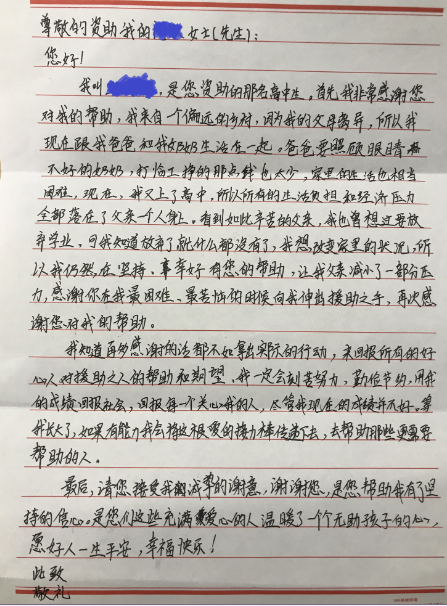 尊敬的资助我的 女士(先生):
您好!
我叫 ,是您资助的那名高中生,首先我非常感谢您
对我的帮助,我来自一个偏远的乡村,因为我的父母离异,所以我
现在跟我爸爸和我奶奶生活在一起。爸爸要照顾眼睛
不好的奶奶,打临工挣的那点钱也太少,家里的生活也相当
困难,现在,我又上了高中,所以所有的生活负担和经济压力
全都落在了父亲一个人身上。看到如此辛苦的父亲,我也曾想过要放
弃学业,可我知道放弃了就什么都没有了,我想改变家里的状况,所
以我仍然在坚持、幸好有您的帮助,让我父亲减小了一部分压
力,感谢你在我最困难、最苦恼的时候向我伸出援助之手,再次感
谢您对我的帮助。
我知道再多感谢的话都不如拿出实际的行动,来回报所有的好
心人对援助之人的帮助和期望、我一定会刻苦努力,勤俭节约,用我
的成绩回报社会,回报每一个关心我的人,尽管我现在的成绩并不好。等
我长大了,如果有能力我会将这根爱的接力棒传递下去,去帮助那些更需要
帮助的人。
最后,请您接受我诚挚的谢意,谢谢您,是您帮助我有了坚
持的信心。是您们这些充满爱心的人温暖了一个个无助孩子的心,
愿好人一生平安,幸福快乐!
此致
敬礼